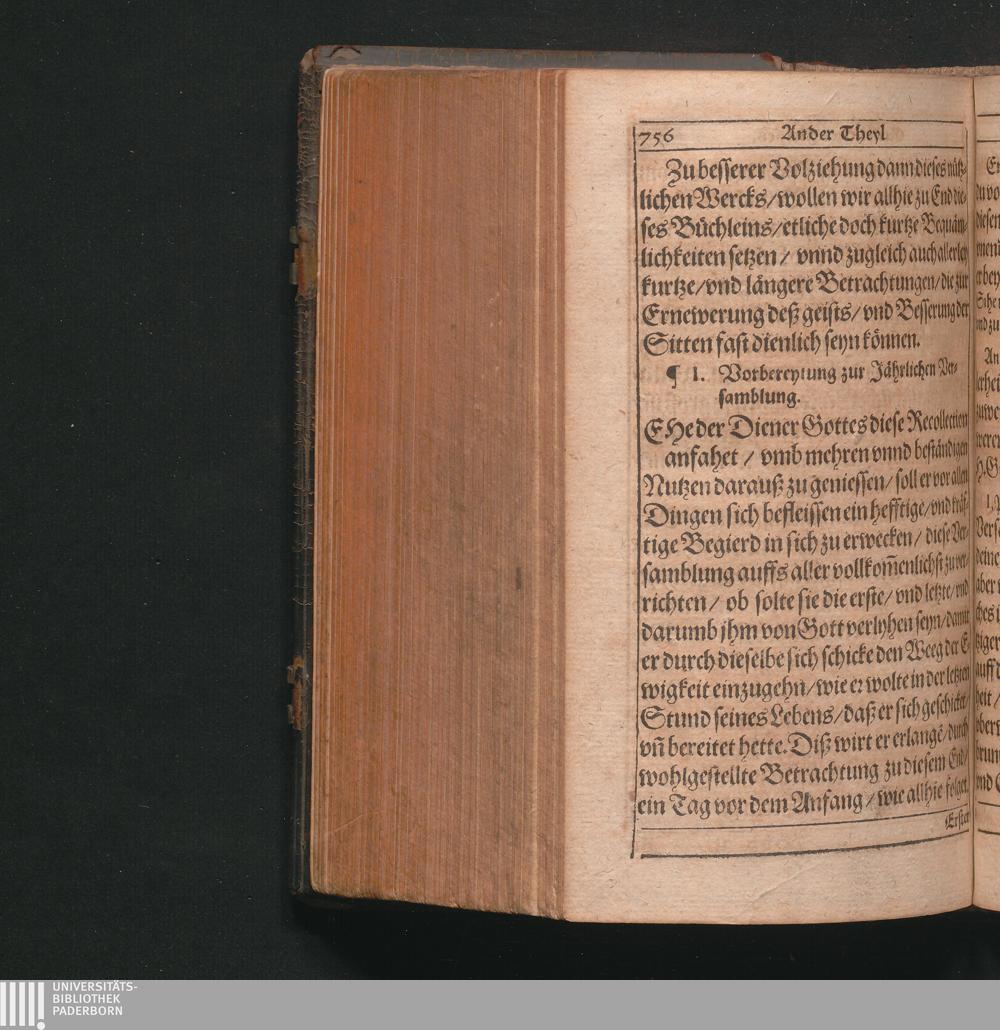 756 Ander Theyl
Zu besserer Volziehung dann dieses nütz-
lichen Wercks/ wollen wir allhie zu End die-
ses Büchleins/ etliche doch kurtze Bequäm-
lichkeiten setzen/ vnnd zugleich auch allerley
kurtze/ vnd längere Betrachtungen/ die zur
Ernewerung deß geists/ vnd Besserung der
Sitten fast dienlich seyn können.
¶ 1. Vorbereytung zur Jährlichen Ver-
samblung.
EHe der Diener Gottes diese Recollection
anfahet/ vmb mehren vnnd beständigen
Nutzen darauß zu geniessen/ soll er vor allen
Dingen sich befleissen ein hefftige/ vnd kräf-
tige Begierd in sich zu erwecken/ diese Ver-
samblung auffs aller vollkom̃enlichst zu ver-
richten/ ob solte sie die erste/ vnd letzte/ vnd
darumb jhm von Gott verlyhen seyn/ damit
er durch dieselbe sich schicke den Weeg der E-
wigkeit einzugehn/ wie er wolte in der letzten
Stund seines Lebens/ daß er sich geschicket/
vñ bereitet hette. Diß wirt er erlangẽ/ durch
wohlgestellte Betrachtung zu diesem End/
ein Tag vor dem Anfang/ wie allhie folget.
Erster
UNIVERSITÄTS-
BIBLIOTHEK
PADERBORN